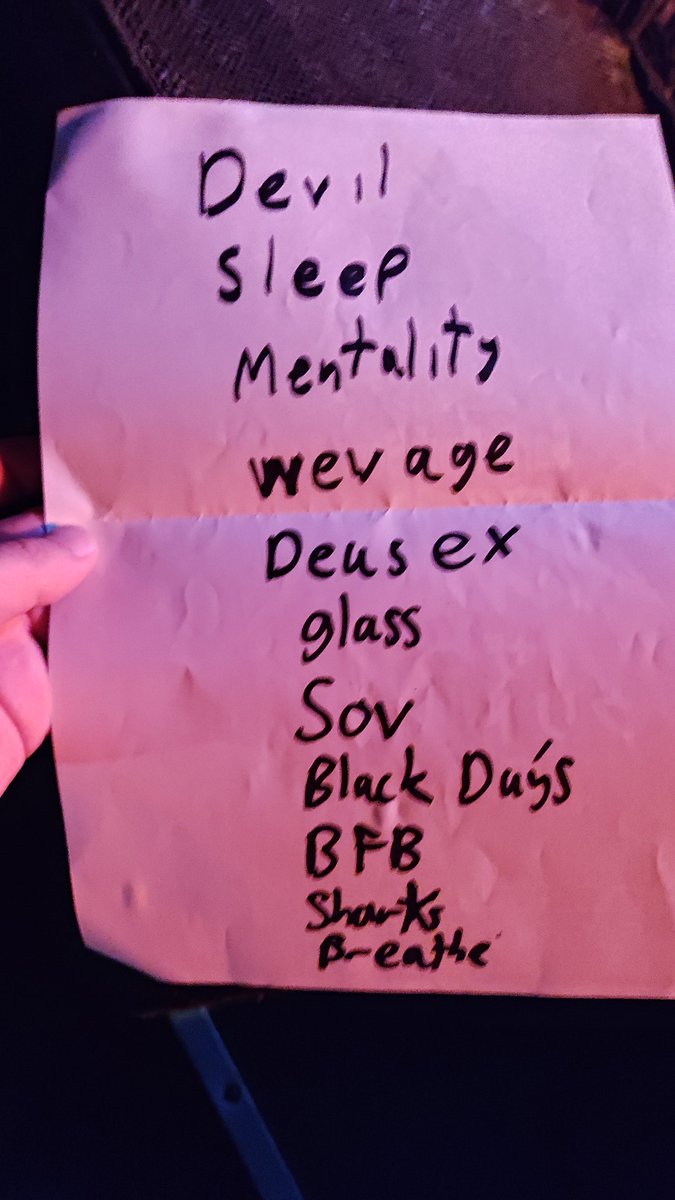 Devil
Sleep
Mentality
wevage
Deus ex
glass
Sov
Black Days
BFB
Sharks
Breathe